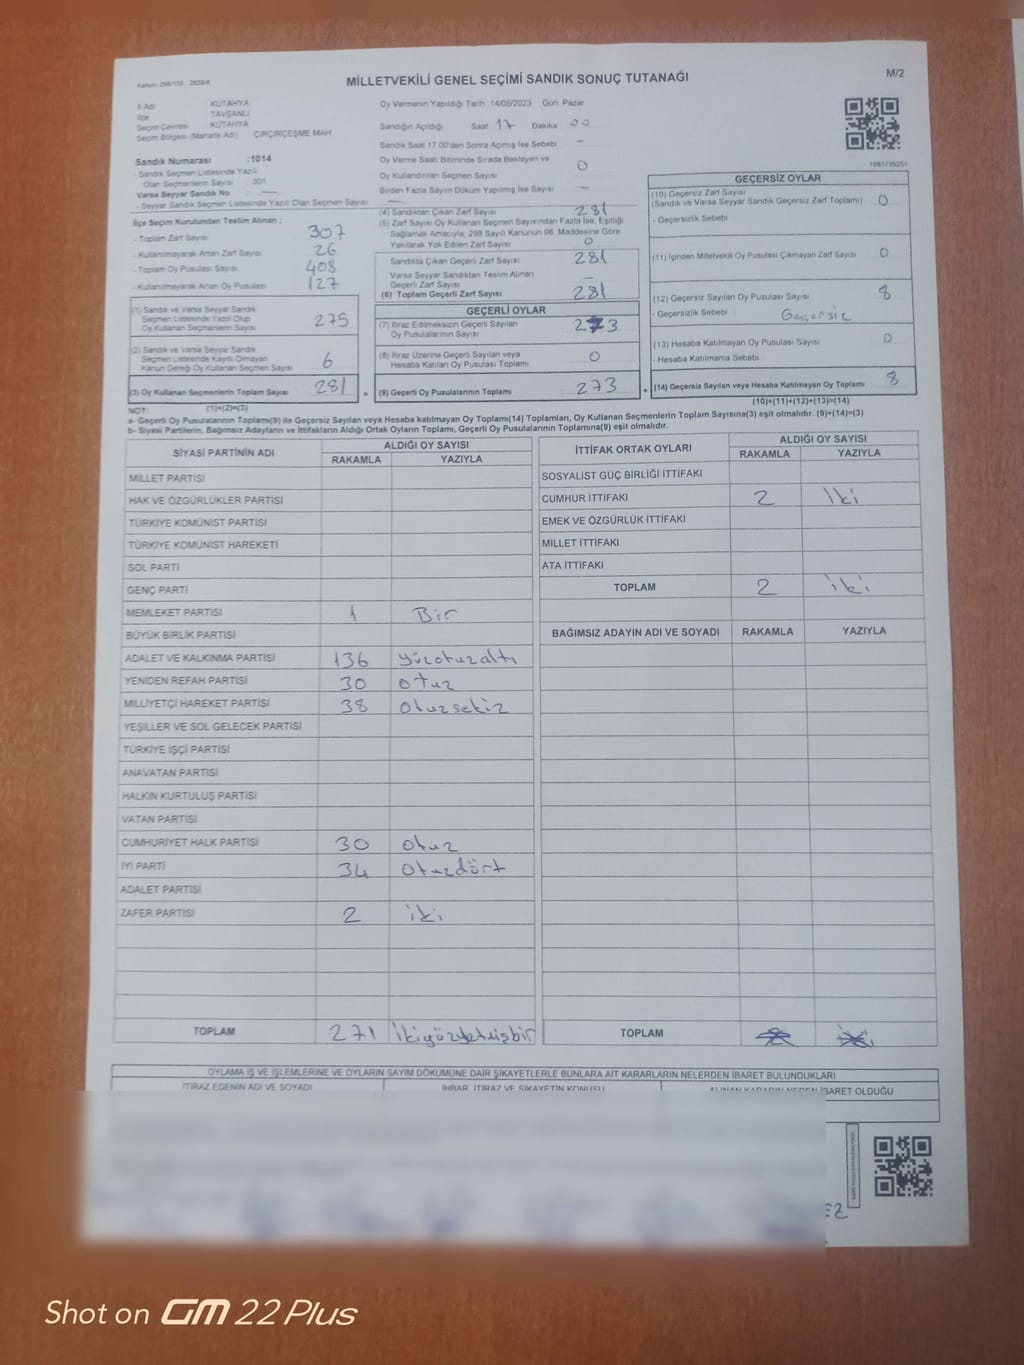 Kanun: 298/105 2839/4
MİLLETVEKİLİ GENEL SEÇİMİ SANDIK SONUÇ TUTANAĞI
M/2
İl Adı KÜTAHYA
İlçe TAVŞANLI
Seçim Çevresi KÜTAHYA
Seçim Bölgesi (Mahalle Adı) : ÇIRÇIRÇEŞME MAH.
Sandık Numarası :1014
- Sandık Seçmen Listesinde Yazılı
Olan Seçmenlerin Sayısı : 301
Varsa Seyyar Sandık No : —
- Seyyar Sandık Seçmen Listesinde Yazılı Olan Seçmen Sayısı : —
Oy Vermenin Yapıldığı Tarih 14/05/2023 Gün Pazar
Sandığın Açıldığı Saat 17 Dakika 00
Sandık Saat 17.00'den Sonra Açımış İse Sebebi —
Oy Verme Saati Bitiminde Sırada Bekleyen ve
Oy Kullandırılan Seçmen Sayısı 0
Birden Fazla Sayım Döküm Yapılmış İse Sayısı —
1063735251
İlçe Seçim Kurulundan Teslim Alınan ;
- Toplam Zarf Sayısı 307
- Kullanılmayarak Artan Zarf Sayısı 26
- Toplam Oy Pusulası Sayısı 408
- Kullanılmayarak Artan Oy Pusulası 127
(1) Sandık ve Varsa Seyyar Sandık
Seçmen Listesinde Yazılı Olup
Oy Kullanan Seçmenlerin Sayısı 275
(2) Sandık ve Varsa Seyyar Sandık
Seçmen Listesinde Kayıtlı Olmayan
Kanun Gereği Oy Kullanan Seçmen Sayısı 6
(3) Oy Kullanan Seçmenlerin Toplam Sayısı 281 =
(1)+(2)=(3)
(4) Sandıktan Çıkan Zarf Sayısı 281
(5) Zarf Sayısı Oy Kullanan Seçmen Sayısından Fazla İse, Eşitliği
Sağlamak Amacıyla; 298 Sayılı Kanunun 98. Maddesine Göre
Yakılarak Yok Edilen Zarf Sayısı 0
Sandıkta Çıkan Geçerli Zarf Sayısı 281
Varsa Seyyar Sandıktan Teslim Alınan
Geçerli Zarf Sayısı —
(6) Toplam Geçerli Zarf Sayısı 281
GEÇERLİ OYLAR
(7) İtiraz Edilmeksizin Geçerli Sayılan
Oy Pusulalarının Sayısı 273
(8) İtiraz Üzerine Geçerli Sayılan veya
Hesaba Katılan Oy Pusulası Toplamı 0
(9) Geçerli Oy Pusulalarının Toplamı 273 +
GEÇERSİZ OYLAR
(10) Geçersiz Zarf Sayısı
(Sandık ve Varsa Seyyar Sandık Geçersiz Zarf Toplamı) 0
- Geçersizlik Sebebi
(11) İçinden Milletvekili Oy Pusulası Çıkmayan Zarf Sayısı 0
(12) Geçersiz Sayılan Oy Pusulası Sayısı 8
- Geçersizlik Sebebi Geçersiz
(13) Hesaba Katılmayan Oy Pusulası Sayısı 0
- Hesaba Katılmama Sebebi
(14) Geçersiz Sayılan veya Hesaba Katılmayan Oy Toplamı 8
(10)+(11)+(12)+(13)=(14)
NOT:
a- Geçerli Oy Pusulalarının Toplamı(9) ile Geçersiz Sayılan veya Hesaba katılmayan Oy Toplamı(14) Toplamları, Oy Kullanan Seçmenlerin Toplam Sayısına(3) eşit olmalıdır. (9)+(14)=(3)
b- Siyasi Partilerin, Bağımsız Adayların ve İttifakların Aldığı Ortak Oyların Toplamı, Geçerli Oy Pusulalarının Toplamına(9) eşit olmalıdır.
SİYASİ PARTİNİN ADI ALDIĞI OY SAYISI
RAKAMLA YAZIYLA
MİLLET PARTİSİ
HAK VE ÖZGÜRLÜKLER PARTİSİ
TÜRKİYE KOMÜNİST PARTİSİ
TÜRKİYE KOMÜNİST HAREKETİ
SOL PARTİ
GENÇ PARTİ
MEMLEKET PARTİSİ 1 Bir
BÜYÜK BİRLİK PARTİSİ
ADALET VE KALKINMA PARTİSİ 136 yüzotuzaltı
YENİDEN REFAH PARTİSİ 30 otuz
MİLLİYETÇİ HAREKET PARTİSİ 38 otuzsekiz
YEŞİLLER VE SOL GELECEK PARTİSİ
TÜRKİYE İŞÇİ PARTİSİ
ANAVATAN PARTİSİ
HALKIN KURTULUŞ PARTİSİ
VATAN PARTİSİ
CUMHURİYET HALK PARTİSİ 30 otuz
İYİ PARTİ 34 otuzdört
ADALET PARTİSİ
ZAFER PARTİSİ 2 iki
TOPLAM 271 ikiyüzyetmişbir
İTTİFAK ORTAK OYLARI ALDIĞI OY SAYISI
RAKAMLA YAZIYLA
SOSYALİST GÜÇ BİRLİĞİ İTTİFAKI
CUMHUR İTTİFAKI 2 iki
EMEK VE ÖZGÜRLÜK İTTİFAKI
MİLLET İTTİFAKI
ATA İTTİFAKI
TOPLAM 2 iki
BAĞIMSIZ ADAYIN ADI VE SOYADI RAKAMLA YAZIYLA
TOPLAM
OYLAMA İŞ VE İŞLEMLERİNE VE OYLARIN SAYIM DÖKÜMÜNE DAİR ŞİKAYETLERLE BUNLARA AİT KARARLARIN NELERDEN İBARET BULUNDUKLARI
İTİRAZ EDENİN ADI VE SOYADI İHBAR, İTİRAZ VE ŞİKAYETİN KONUSU ALINAN KARARIN NEDEN İBARET OLDUĞU
EZ
Shot on GM 22 Plus